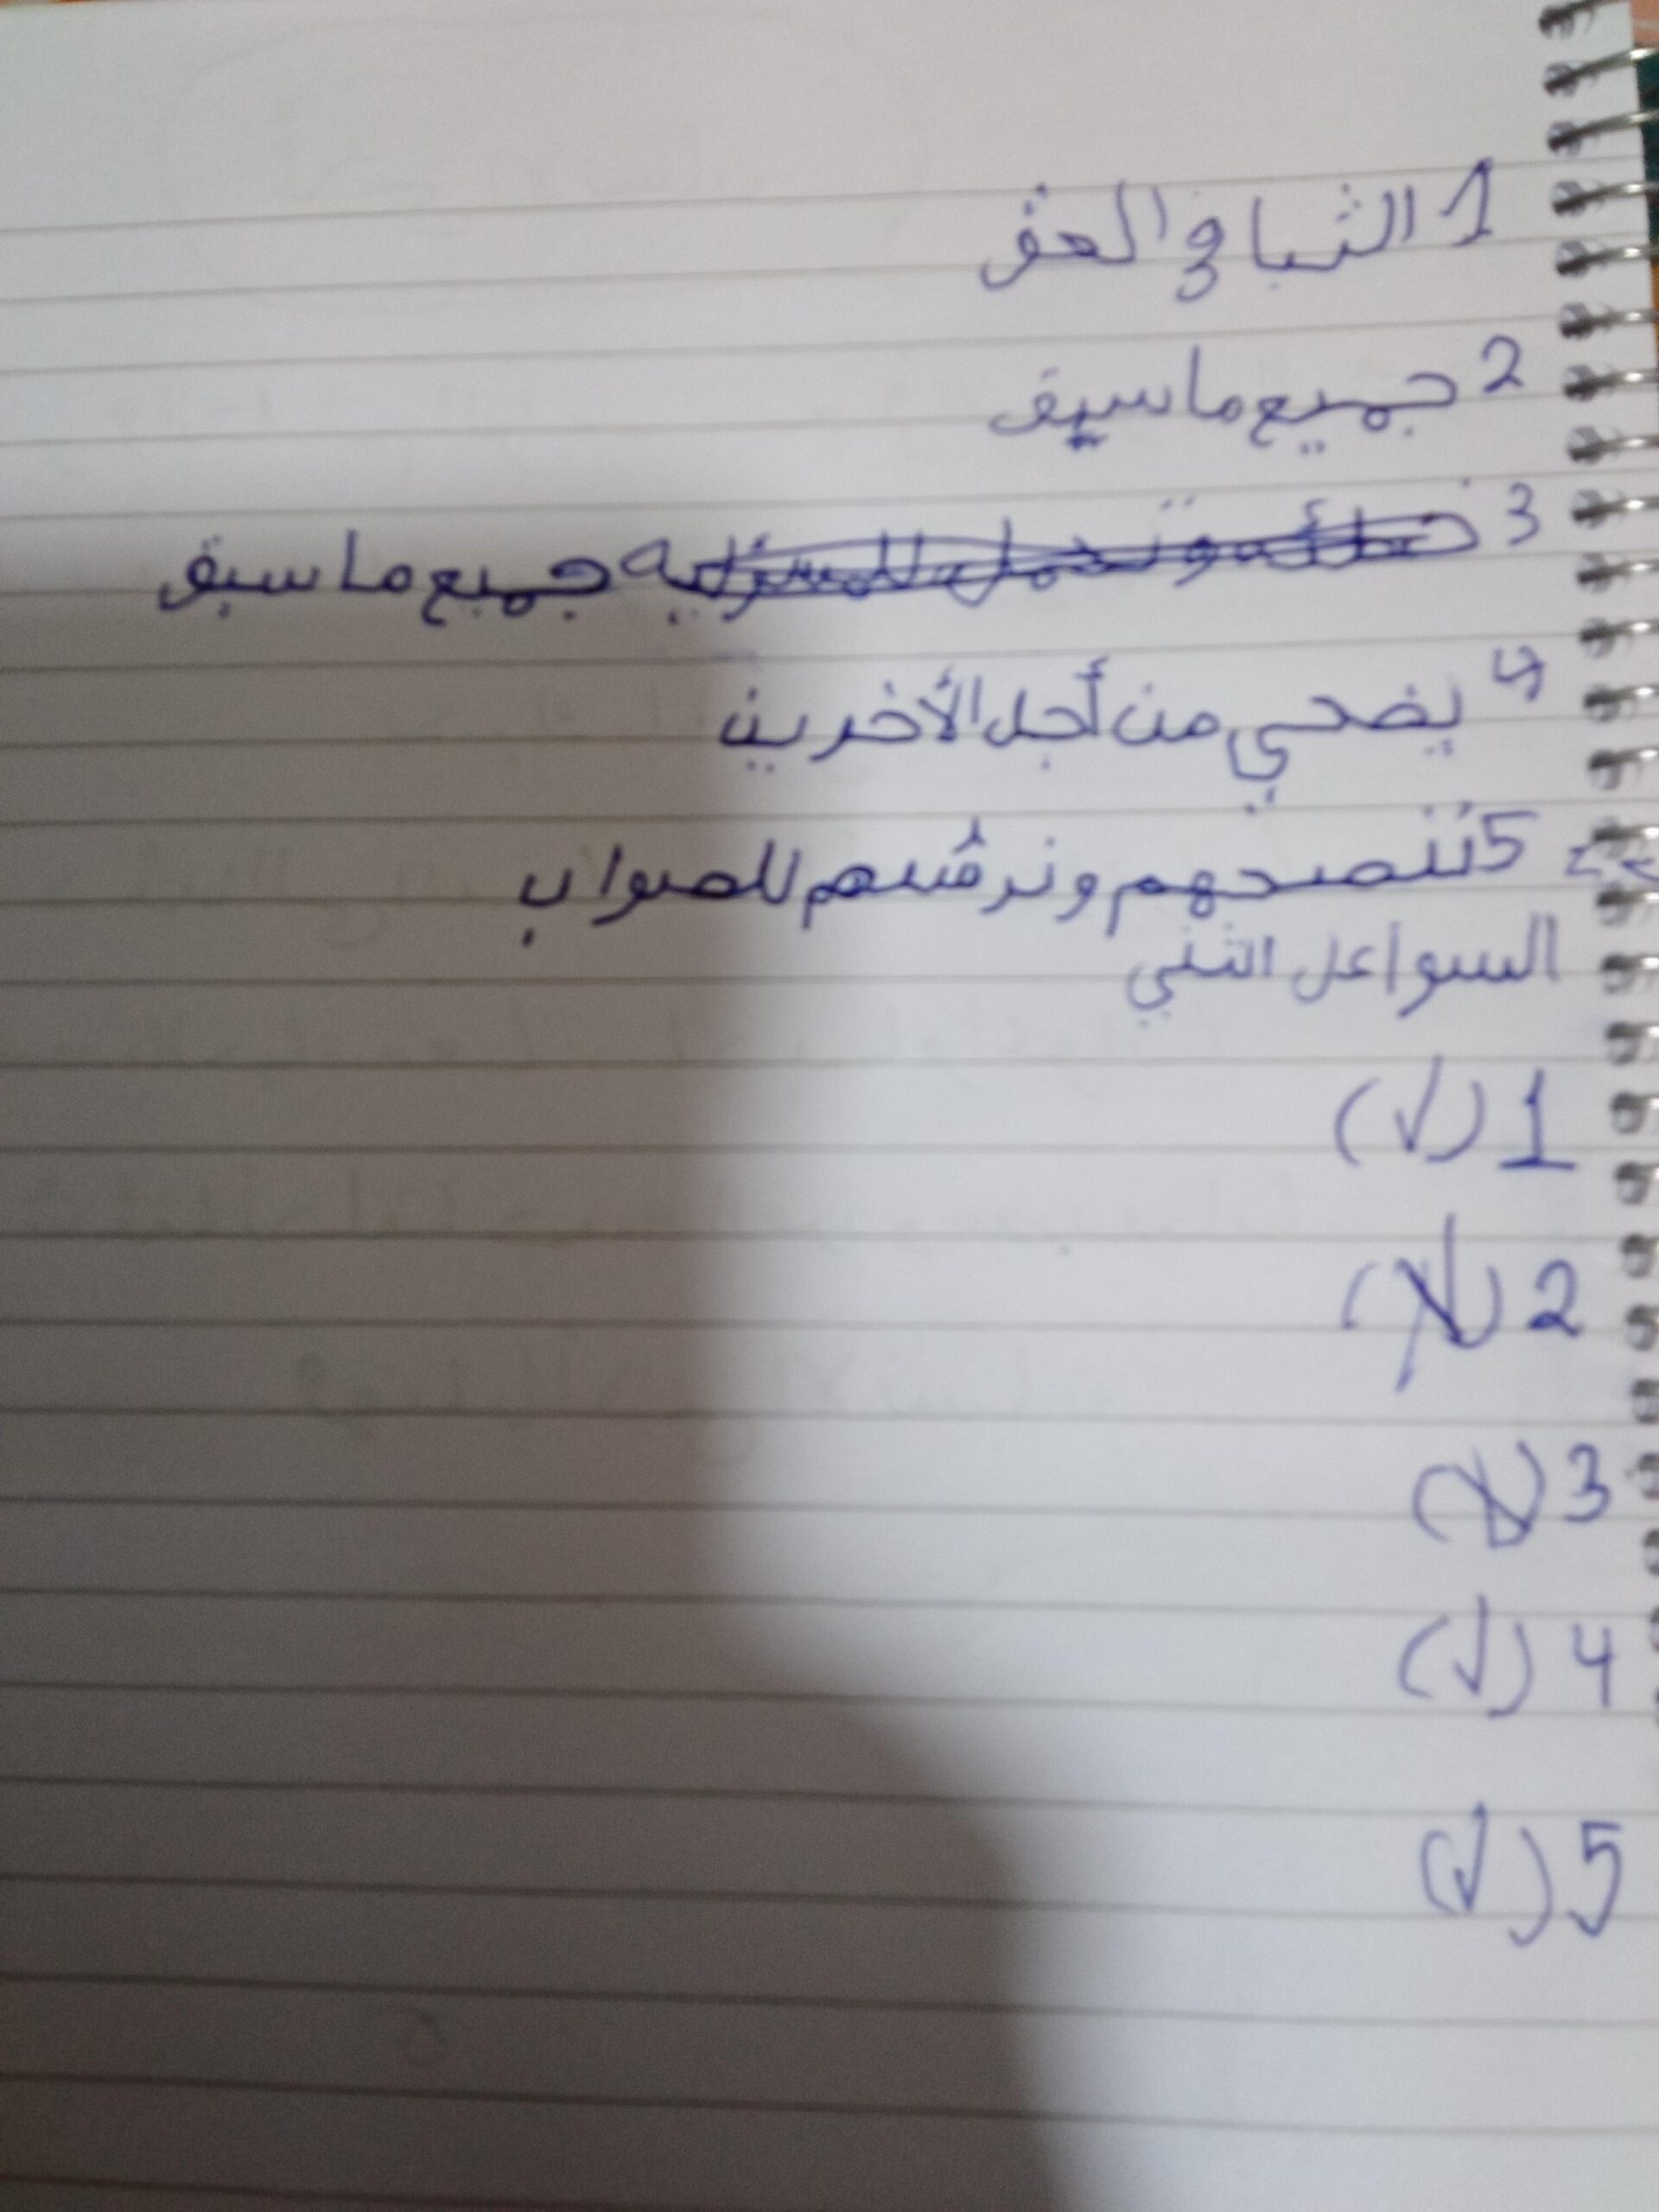 1 الثبا في الحق
2 جميع ما سبق
3 جميع ما سبق
4 يضحي من أجل الأخرين
5 ننصحهم ونرشدهم للصواب
السواعل الثني
1 (✓)
2 (✗)
3 (✗)
4 (✓)
5 (✓)